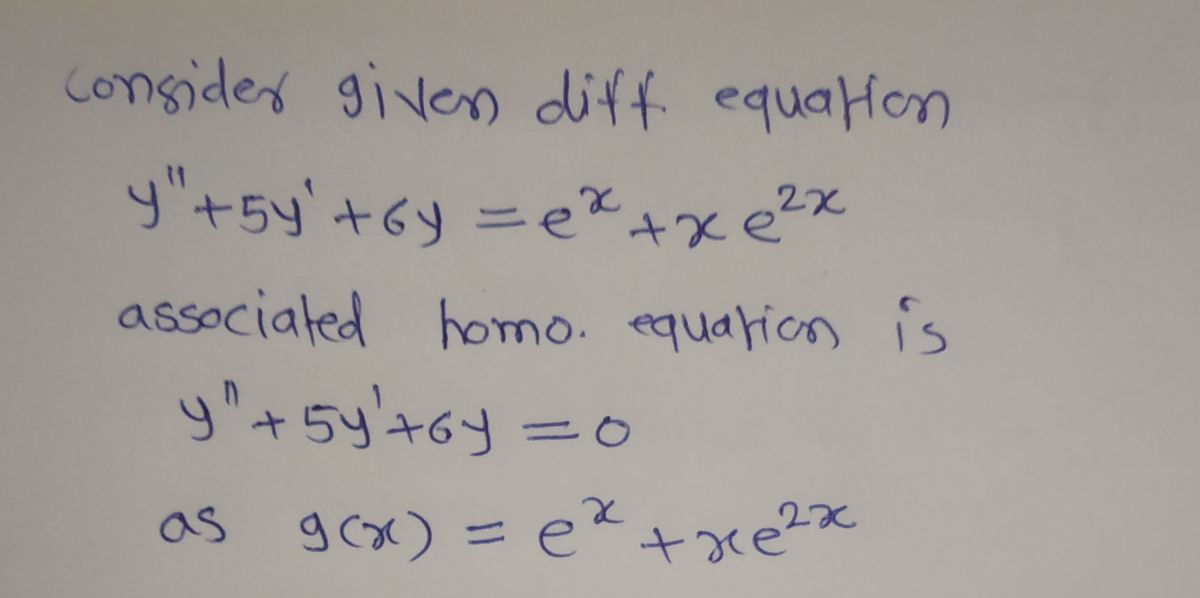 consider given diff. equation
y" + 5y' + 6y = eˣ + x e²ˣ
associated homo. equation is
y" + 5y' + 6y = 0
as g(x) = eˣ + xe²ˣ